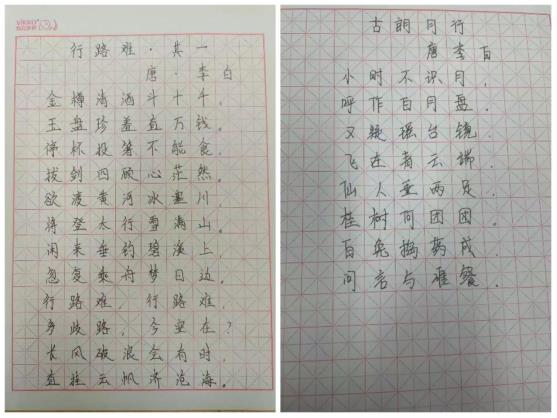 行路难·其一
唐·李白
金樽清酒斗十千,
玉盘珍羞直万钱。
停杯投箸不能食,
拔剑四顾心茫然。
欲渡黄河冰塞川,
将登太行雪满山。
闲来垂钓碧溪上,
忽复乘舟梦日边。
行路难,行路难,
多歧路,今安在?
长风破浪会有时,
直挂云帆济沧海。
古朗月行
唐李白
小时不识月,
呼作白月盘.
又疑瑶台镜,
飞在青云端.
仙人垂两足,
桂树何团团.
白兔捣药成
问言与谁餐.